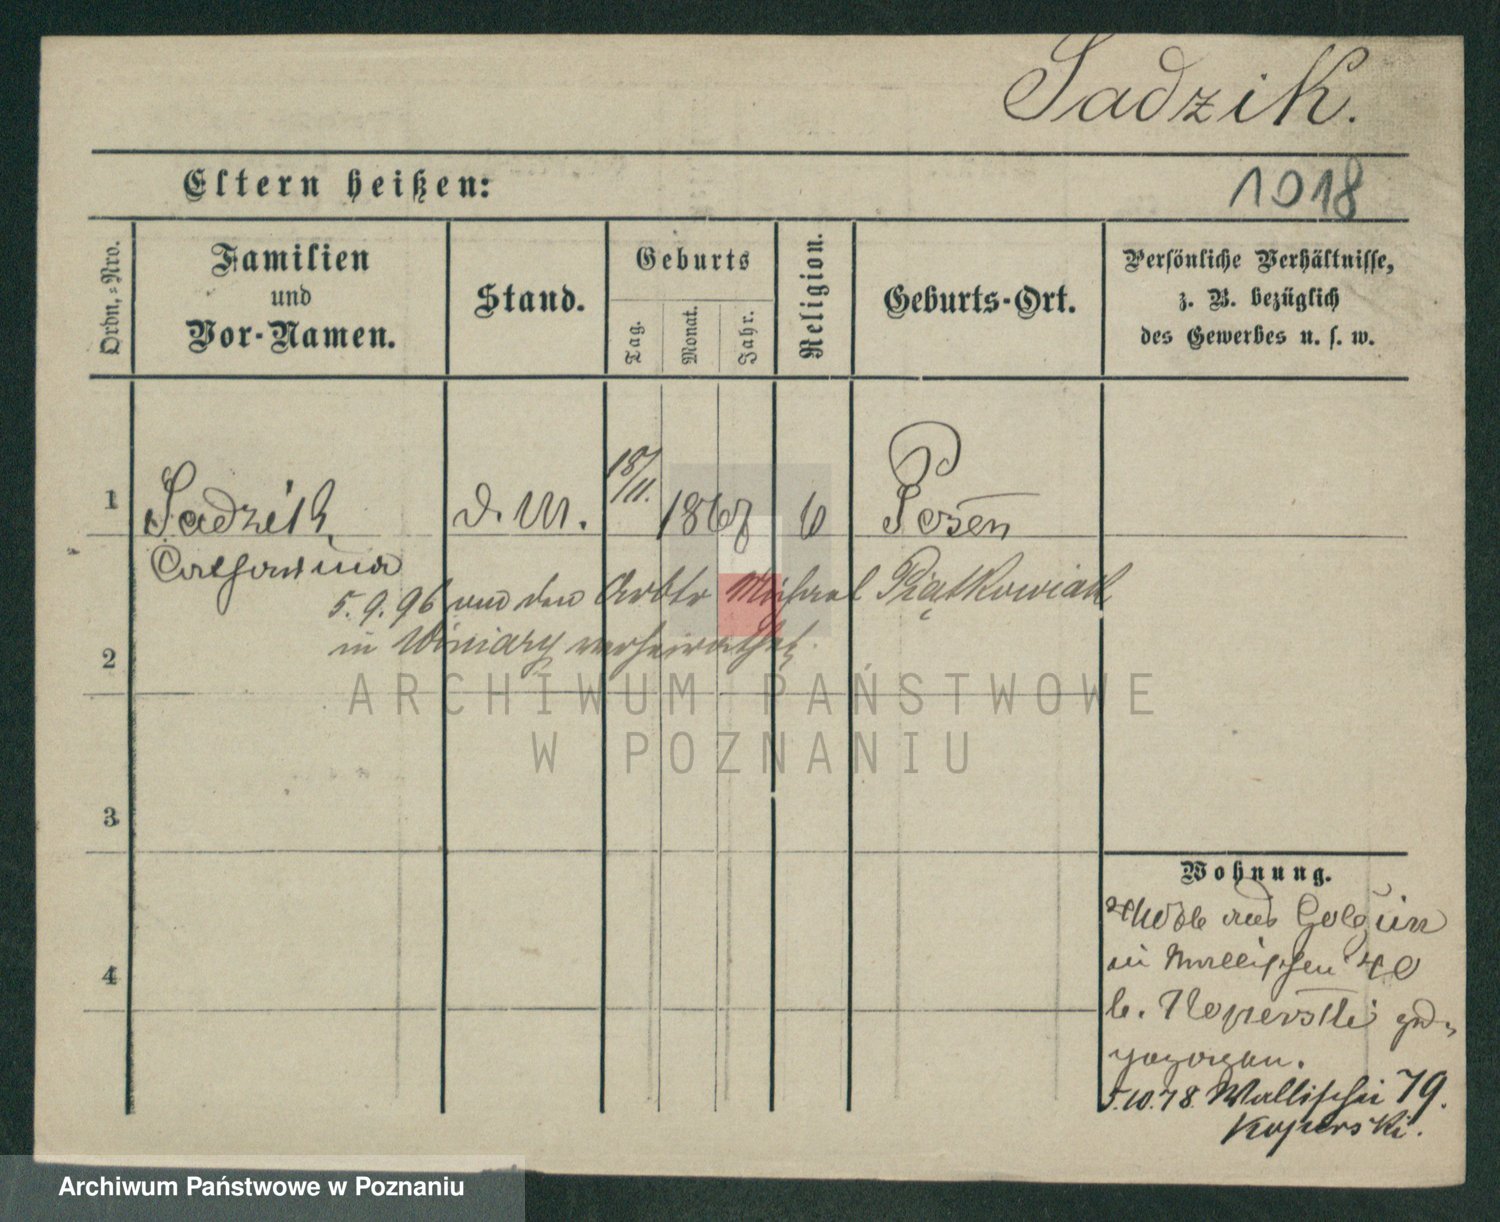 Sadzik.
Eltern heißen:
1018
Ordn.-Nro.
Familien
und
Vor-Namen.
Stand.
Geburts
Tag.
Monat.
Jahr.
Religion.
Geburts-Ort.
Persönliche Verhältnisse,
z. B. bezüglich
des Gewerbes u. s. w.
1
Sadzik
Catharina
d. M.
18/11.
1867
Posen
5.9.96 an den Arbtr Michael Piątkowiak
in Winiary verheirathet.
2
ARCHIWUM PAŃSTWOWE
W POZNANIU
3
4
Wohnung.
aus
in Wallischei 40
b. Koperski
gezogen.
5.10.78. Wallischei 79.
Koperski.
Archiwum Państwowe w Poznaniu